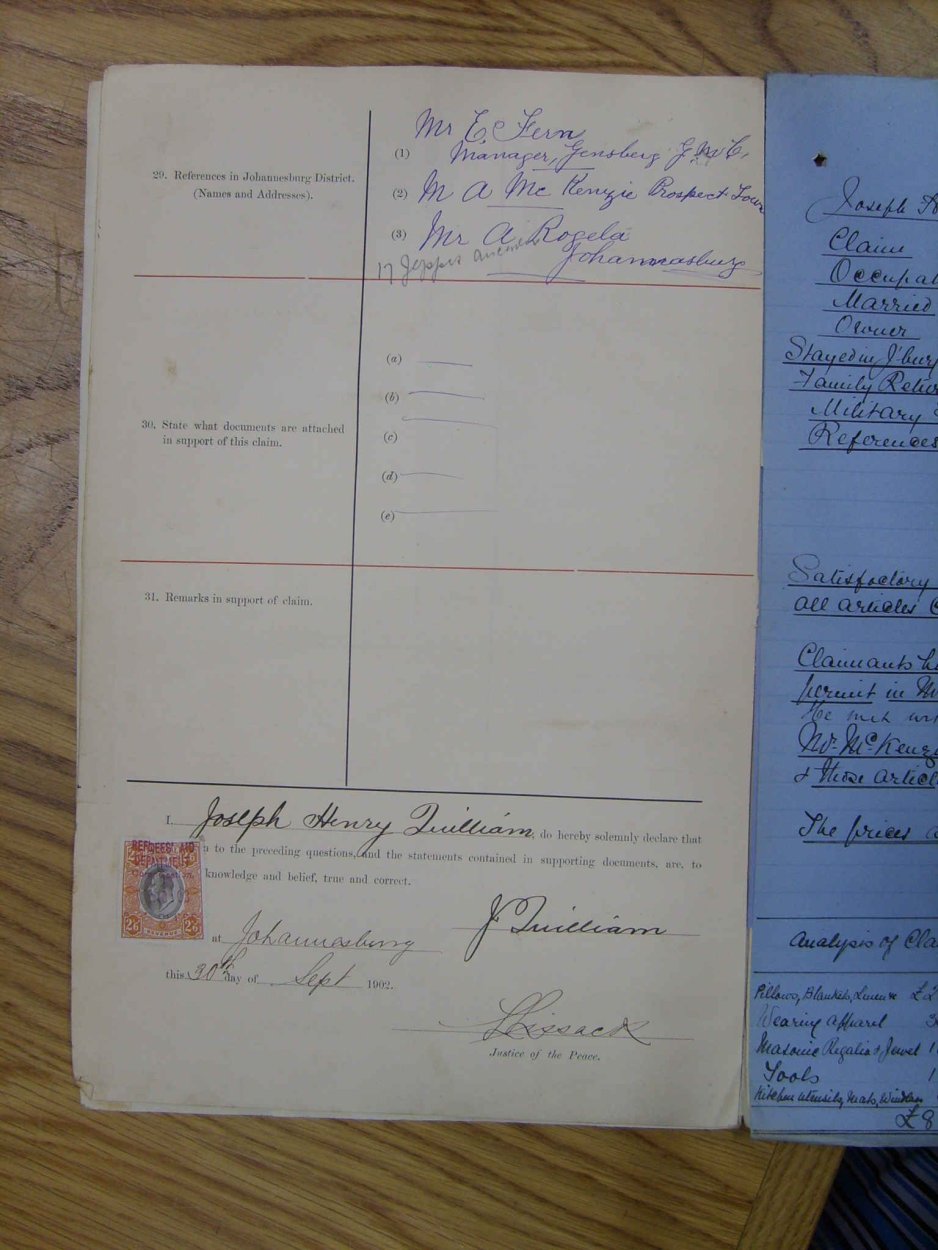 29. References in Johannesburg District.
(Names and Addresses).
Mr E C Fern
(1) Manager, Ginsberg G M C,
(2) M A McKenzie Prospect Town
(3) Mr A Rogela
Johannesburg
17 Jeppes
30. State what documents are attached
in support of this claim.
(a)
(b)
(c)
(d)
(e)
31. Remarks in support of claim.
I, Joseph Henry Quilliam, do hereby solemnly declare that
to the preceding questions, and the statements contained in supporting documents, are, to
knowledge and belief, true and correct.
REFUGEES' AID
DEPARTMENT
2/6 REVENUE 2/6
J Quilliam
at Johannesburg
this 30th day of Sept 1902.
L Lissack
Justice of the Peace.
Joseph H
Claim
Occupat
Married
Owner
Stayed in J'burg
Family Retur
Military
References
Satisfactory
all articles
Claimants ha
permit in M
He met wi
Mr. McKenz
& these articl
The prices a
Analysis of Cla
Pillows, Blankets, Linen &c £2
Wearing apparel 3
Masonic Regalia & Jewel 1
Tools 1
Kitchen utensils, Mats, Window
£8